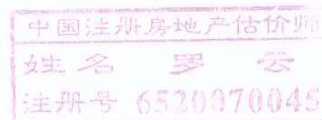 中国注册房地产估价师
姓名 罗云
注册号 6520070045